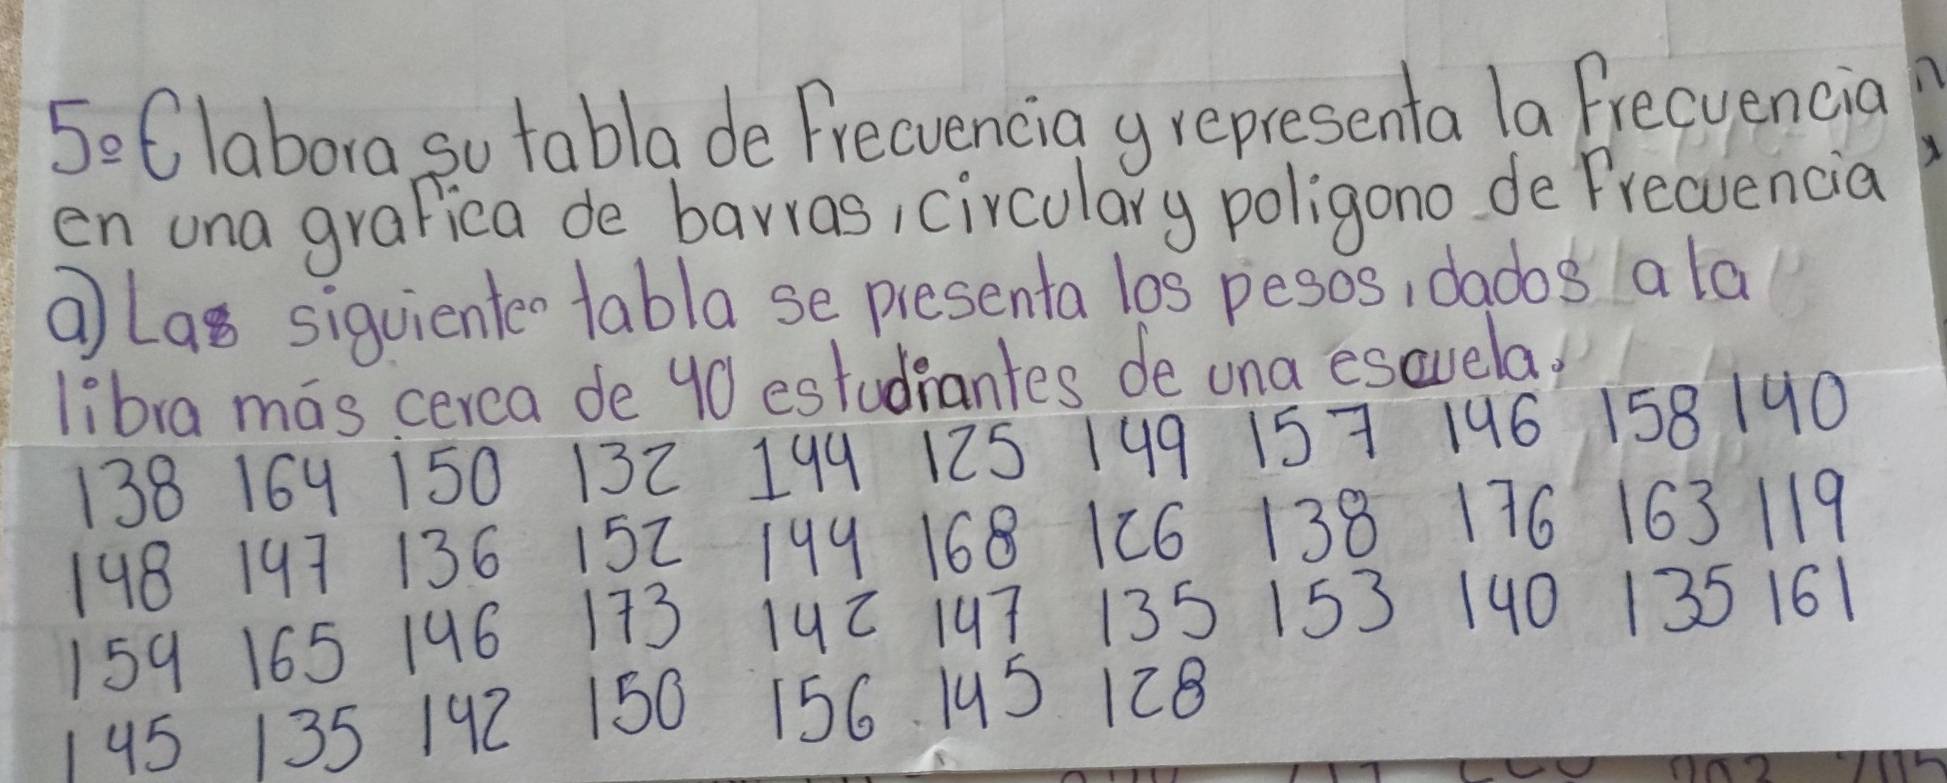 5º Elabora su tabla de Frecuencia y representa la Frecuencia
en una grafica de barras, circular y poligono de Frecuencia
a) Las siguiente tabla se presenta los pesos, dados a la
libra más cerca de 40 estudiantes de una escuela.
138 164 150 132 144 125 149 157 146 158 140
148 147 136 152 144 168 126 138 176 163 119
154 165 146 173 142 147 135 153 140 135 161
145 135 142 150 156 145 128